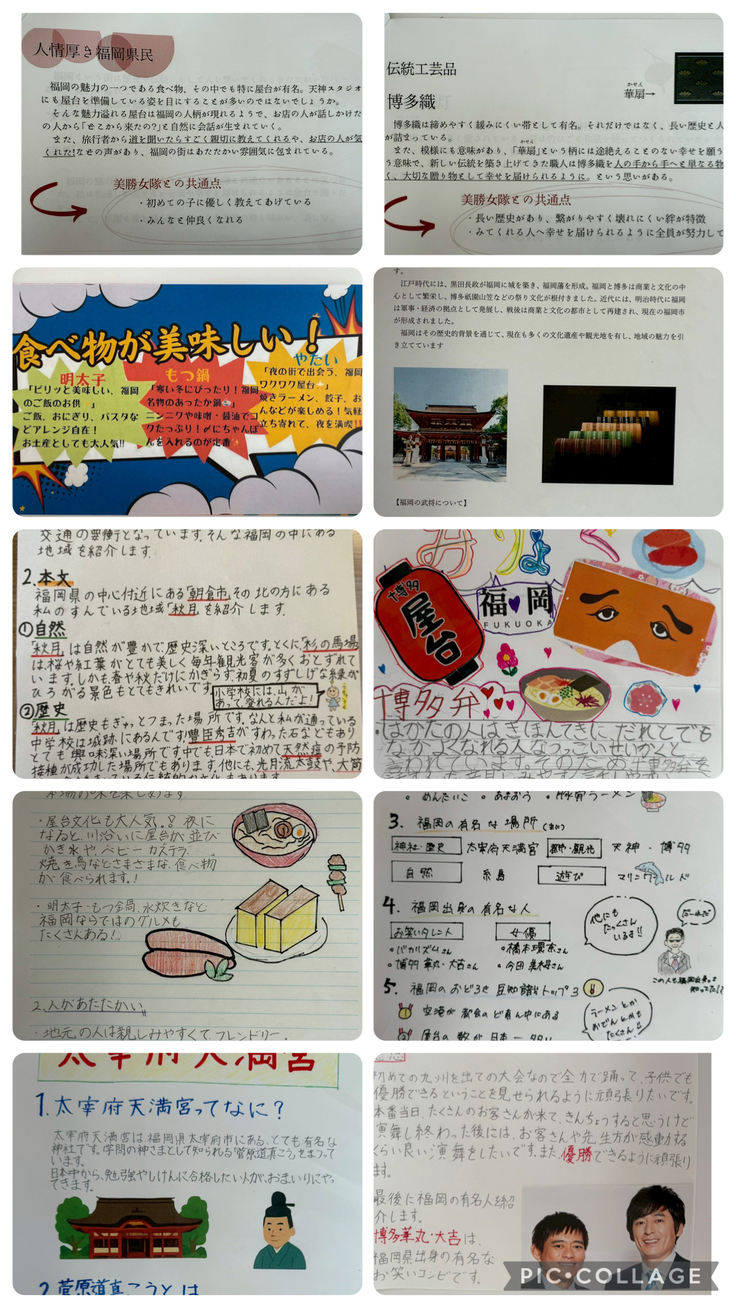 人情厚き福岡県民
福岡の魅力の一つである食べ物、その中でも特に屋台が有名。天神スタジオ
にも屋台を準備している姿を目にすることが多いのではないでしょうか。
そんな魅力溢れる屋台は福岡の人柄が現れるようで、お店の人が話しかけた
の人から「せこから来たの?」と自然に会話が生まれていく。
また、旅行者から道を聞いたらすごく親切に教えてくれるや、お店の人が気
くれた!なその声があり、福岡の街はあたたかい雰囲気に包まれている。
美勝女隊との共通点
・初めての子に優しく教えてあげている
・みんなと仲良くなれる
伝統工芸品
かせん
華扇→
博多織
博多織は締めやすく緩みにくい帯として有名。それだけではなく、長い歴史と人
が詰まっている。
かせん
また、模様にも意味があり、「華扇」という柄には途絶えることのない幸せを願う
う意味で、新しい伝統を築き上げてきた職人は博多織を人の手から手へと単なる物
く、大切な贈り物として幸せを届けられるように。という思いがある。
美勝女隊との共通点
・長い歴史があり、繋がりやすく壊れにくい絆が特徴
・みてくれる人へ幸せを届けられるように全員が努力して
食べ物が美味しい!
明太子
「ピリッと美味しい、福岡
のご飯のお供 」
ご飯、おにぎり、パスタな
どアレンジ自在!
お土産としても大人気!!
もつ鍋
「寒い冬にぴったり!福岡
名物のあったか鍋 」
ニンニクや味噌・醤油でコ
クたっぷり!〆にちゃんぽ
んを入れるのが定番
やたい
「夜の街で出会う、福岡
ワクワク屋台 」
焼きラーメン、餃子、お
んなどが楽しめる!気軽
立ち寄れて、夜を満喫!!
す。
江戸時代には、黒田長政が福岡に城を築き、福岡藩を形成。福岡と博多は商業と文化の中
心として繁栄し、博多祇園山笠などの祭り文化が根付きました。近代には、明治時代に福岡
は軍事・経済の拠点として発展し、戦後は商業と文化の都市として再建され、現在の福岡市
が形成されました。
福岡はその歴史的背景を通じて、現在も多くの文化遺産や観光地を有し、地域の魅力を引
き立てています
【福岡の武将について】
交通の要衝となっています。そんな福岡の中にある
地域を紹介します。
2.本文
福岡県の中心付近にある「朝倉市」その北の方にある
私のすんでいる地域「秋月」を紹介します。
①自然
「秋月」は自然が豊かで歴史深いところです。とくに「杉の馬場
は、桜や紅葉がとても美しく毎年観光客が多くおとずれて
います。しかも春や秋だけにかぎらず、初夏のすずしげな緑が
ひろがる景色もとてもきれいです。
小学校には、山が
あって、登れるんだよ!
②歴史
「秋月」は歴史もぎゅっとつまった場所です。なんと私が通っている
中学校は城跡にあるんです!豊臣秀吉がすわった石などもあり
とても興味深い場所です。中でも日本で初めて天然痘の予防
接種が成功した場所でもあります。他にも、光月流太鼓や、大筒
博多
屋台
福岡
FUKUOKA
博多弁
・はかたの人はきほんてきに、だれとでも
なかよくなれる人なつっこいせいかくと
言われています。そのため、博多弁を
・屋台文化も大人気!夜に
なると、川沿いに屋台が並び
かき氷や、ベビーカステラ
焼き鳥などさまざまな、食べ物
が食べられます!
・明太子・もつ鍋、水炊きなど
福岡ならではのグルメも
たくさんある!
2.人があたたかい
・地元の人は親しみやすくて、フレンドリー。
3. 福岡の有名な場所
神社・歴史 太宰府天満宮
天神・博多
自然 糸島
遊び マリンワールド
4. 福岡出身の有名な人
お笑いタレント
女優
・バカリズムさん
・橋本環奈さん
・博多華丸・大吉さん
・今田美桜さん
他にも
たっくさん
いるよ!!
だーれだ
5. 福岡のおどろき豆知識トップ3
空港が都会のど真ん中にある
屋台の数が日本一
太宰府天満宮
1.太宰府天満宮ってなに?
太宰府天満宮は福岡県太宰府市にある、とても有名な
神社です。学問の神さまとして知られる「菅原道真こう」をまつって
います。
日本中から、勉強やしけんに合格したい人が、おまいりにやっ
てきます。
2.菅原道真こうとは
初めての九州を出ての大会なので全力で踊って、子供でも
優勝できるということを見せられるように頑張りたいです。
本番当日、たくさんのお客さんが来て、きんちょうすると思うけど
演舞し終わった後には、お客さんや先生方が感動する
くらい良い演舞をしたいです。また、優勝できるように頑張り
ます。
最後に福岡の有名人を紹
介します。
博多華丸・大吉は、
福岡県出身の有名な
お笑いコンビです。
PIC•COLLAGE